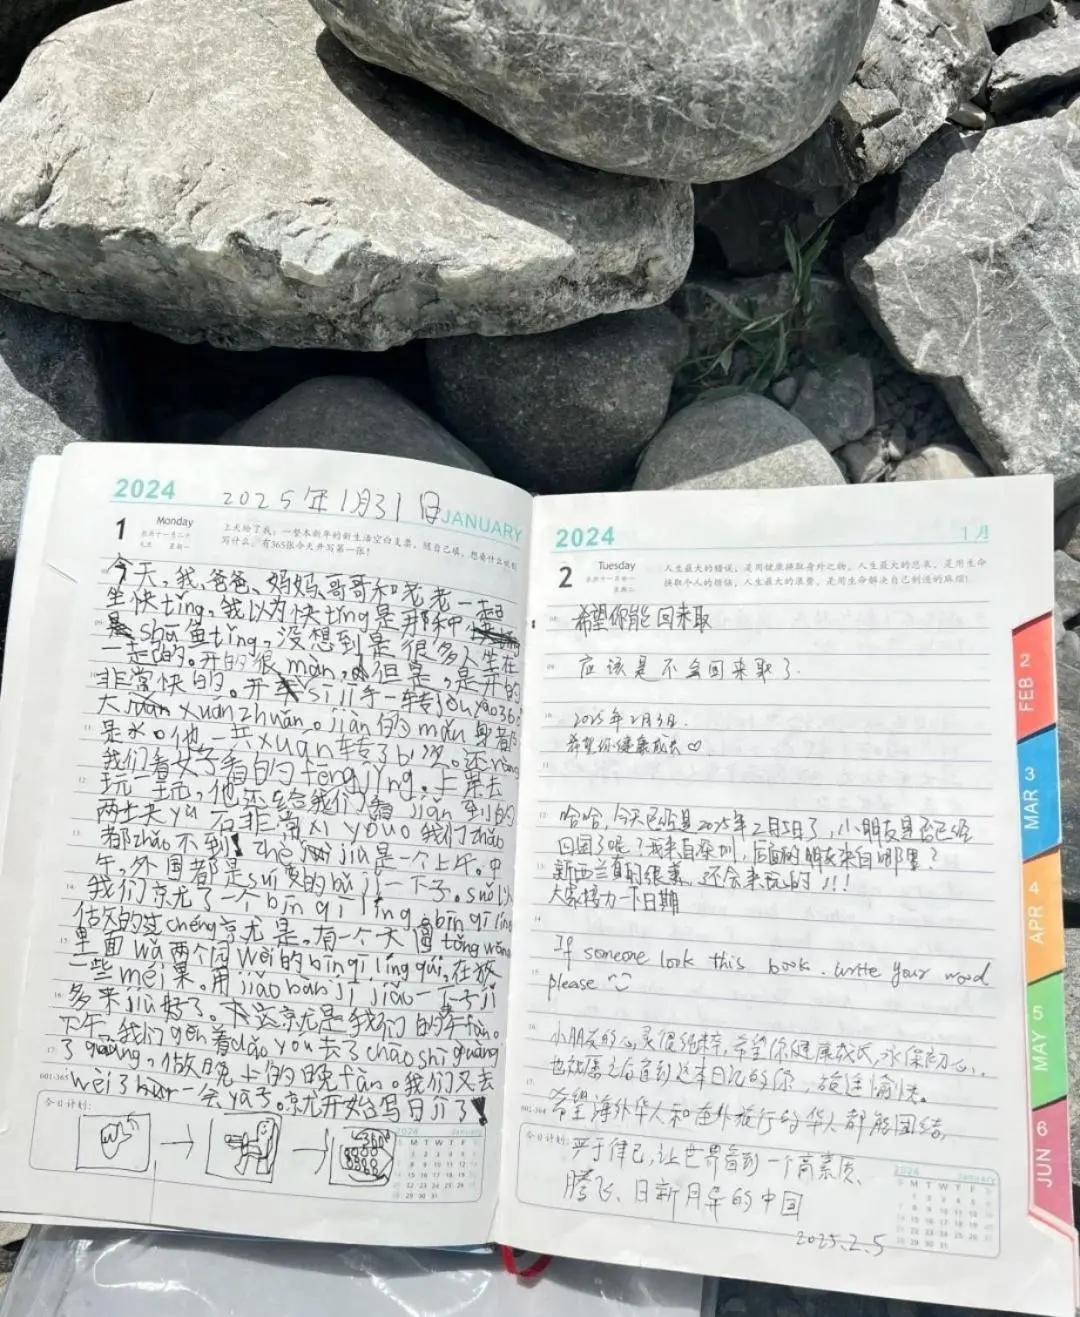 2024
2025年1月31日
JANUARY
1
Monday
上天给了我:一整本新年的新生活空白支票,随自己填,想要什么就
写什么。有365张今天并写第一张!
今天,我、爸爸、妈妈、哥哥和老老一起
坐快tǐng。我以为快tǐng是那种
shā鱼tǐng,没想到是很多人坐在
一起的。开的很màn,但是,是开的
非常快的。开 sī jī手一转jòu yào 360
大 xuán zhuǎn。jiàn的mǎn身都
是水。他一共xuán转了6次。还
我们看女子看的fēng jǐng。上岸去
玩一玩,他还给我们 jiǎn 到的
两土夬yù石非常xī yǒu 我们zhǎo
都zhǎo不到! zhè jiù是一个上午。中
午,外国都是suí 的bǔ jǐ一下子。suǒ以
我们京尤了一个bīn qī líng。bīn qī líng
估攵的 chéng京尤是,有一个大 tǒng
里面wā两个 wèi的bīn qī líng qiú,在
一些méi果。用jiǎo bàn jī jiǎo一下子jī
多来jiù好了。 这京尤是我们的午fàn。
下午,我们gēn着dǎo yóu去了chāo shì guàng
了guàng,做晚上的晚fàn。我们又去
wèi了 一会yā子。京尤开始写日介了!
601-365
今日计划:
2024
January
S M T W T F S
2024
1月
2
Tuesday
人生最大的错误,是用健康换取身外之物,人生最大的悲哀,是用生命
换取个人的烦恼,人生最大的浪费,是用生命解决自己制造的麻烦!
希望你能回来取
应该是不会回来取了.
2025年2月3日.
希望你健康成长♡
哈哈,今天已经是2025年2月5日了,小朋友是否已经
回国了呢?我来自深圳,后面的朋友来自哪里?
新西兰真的很美,还会来玩的!!!
大家接力一下日期
If someone look this book. write your word
please
小朋友的心灵很纯粹,希望你健康成长,永保初心.
也祝愿之后看到这本日记的你,旅途愉快。
希望海外华人和在外旅行的华人都能团结,
002-364
今日计划:
严于律己,让世界看到一个高素质、
腾飞、日新月异的中国
2025.2.5
2024
January
S M T W T F S
2
FEB
3
MAR
4
APR
5
MAY
6
JUN